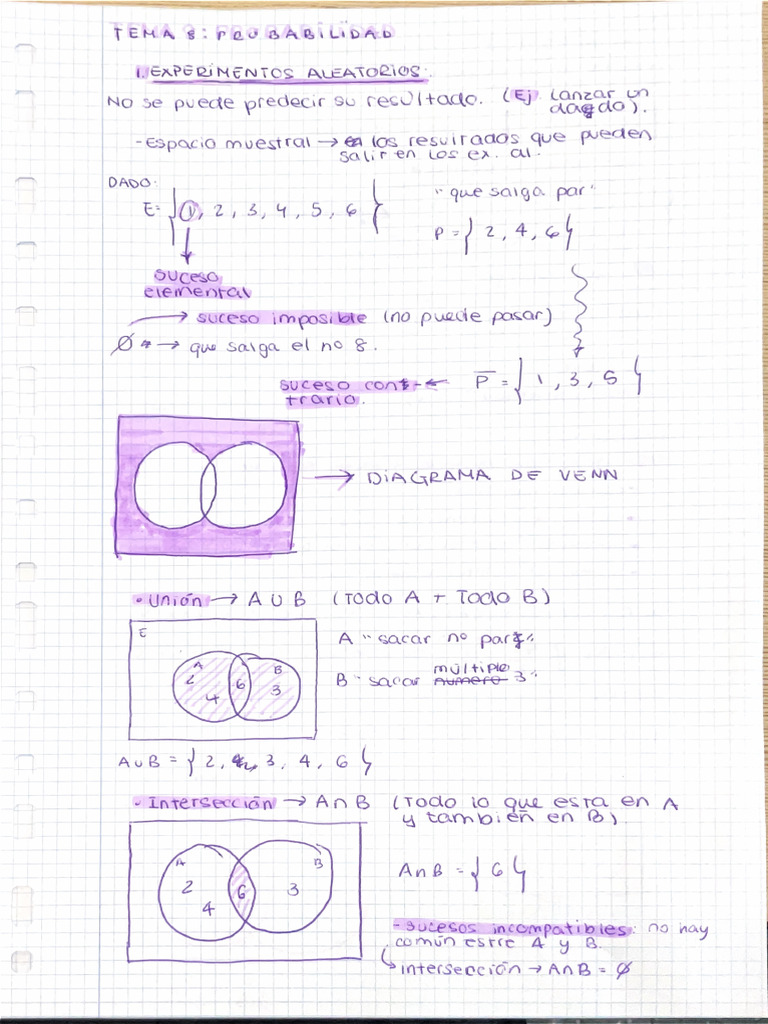 TEMA 8: PROBABILIDAD
1. EXPERIMENTOS ALEATORIOS:
No se puede predecir su resultado. (Ej. Lanzar un
dado).
- Espacio muestral → los resultados que pueden
salir en los ex. al.
DADO:
E = { 1, 2, 3, 4, 5, 6 }
"que salga par"
P = { 2, 4, 6 }
suceso
elemental
→ suceso imposible (no puede pasar)
Ø → que salga el no 8.
suceso con-
trario. ← P̅ = { 1, 3, 5 }
→ DIAGRAMA DE VENN
• Unión → A ∪ B (Todo A + Todo B)
E
A B
2 4 6 3
A "sacar no par"
B "sacar múltiplo numero 3"
A ∪ B = { 2, 3, 4, 6 }
• Intersección → A ∩ B (Todo lo que esta en A
y también en B).
A B
2 4 6 3
A ∩ B = { 6 }
- sucesos incompatibles: no hay
común estre A y B.
intersección → A ∩ B = Ø